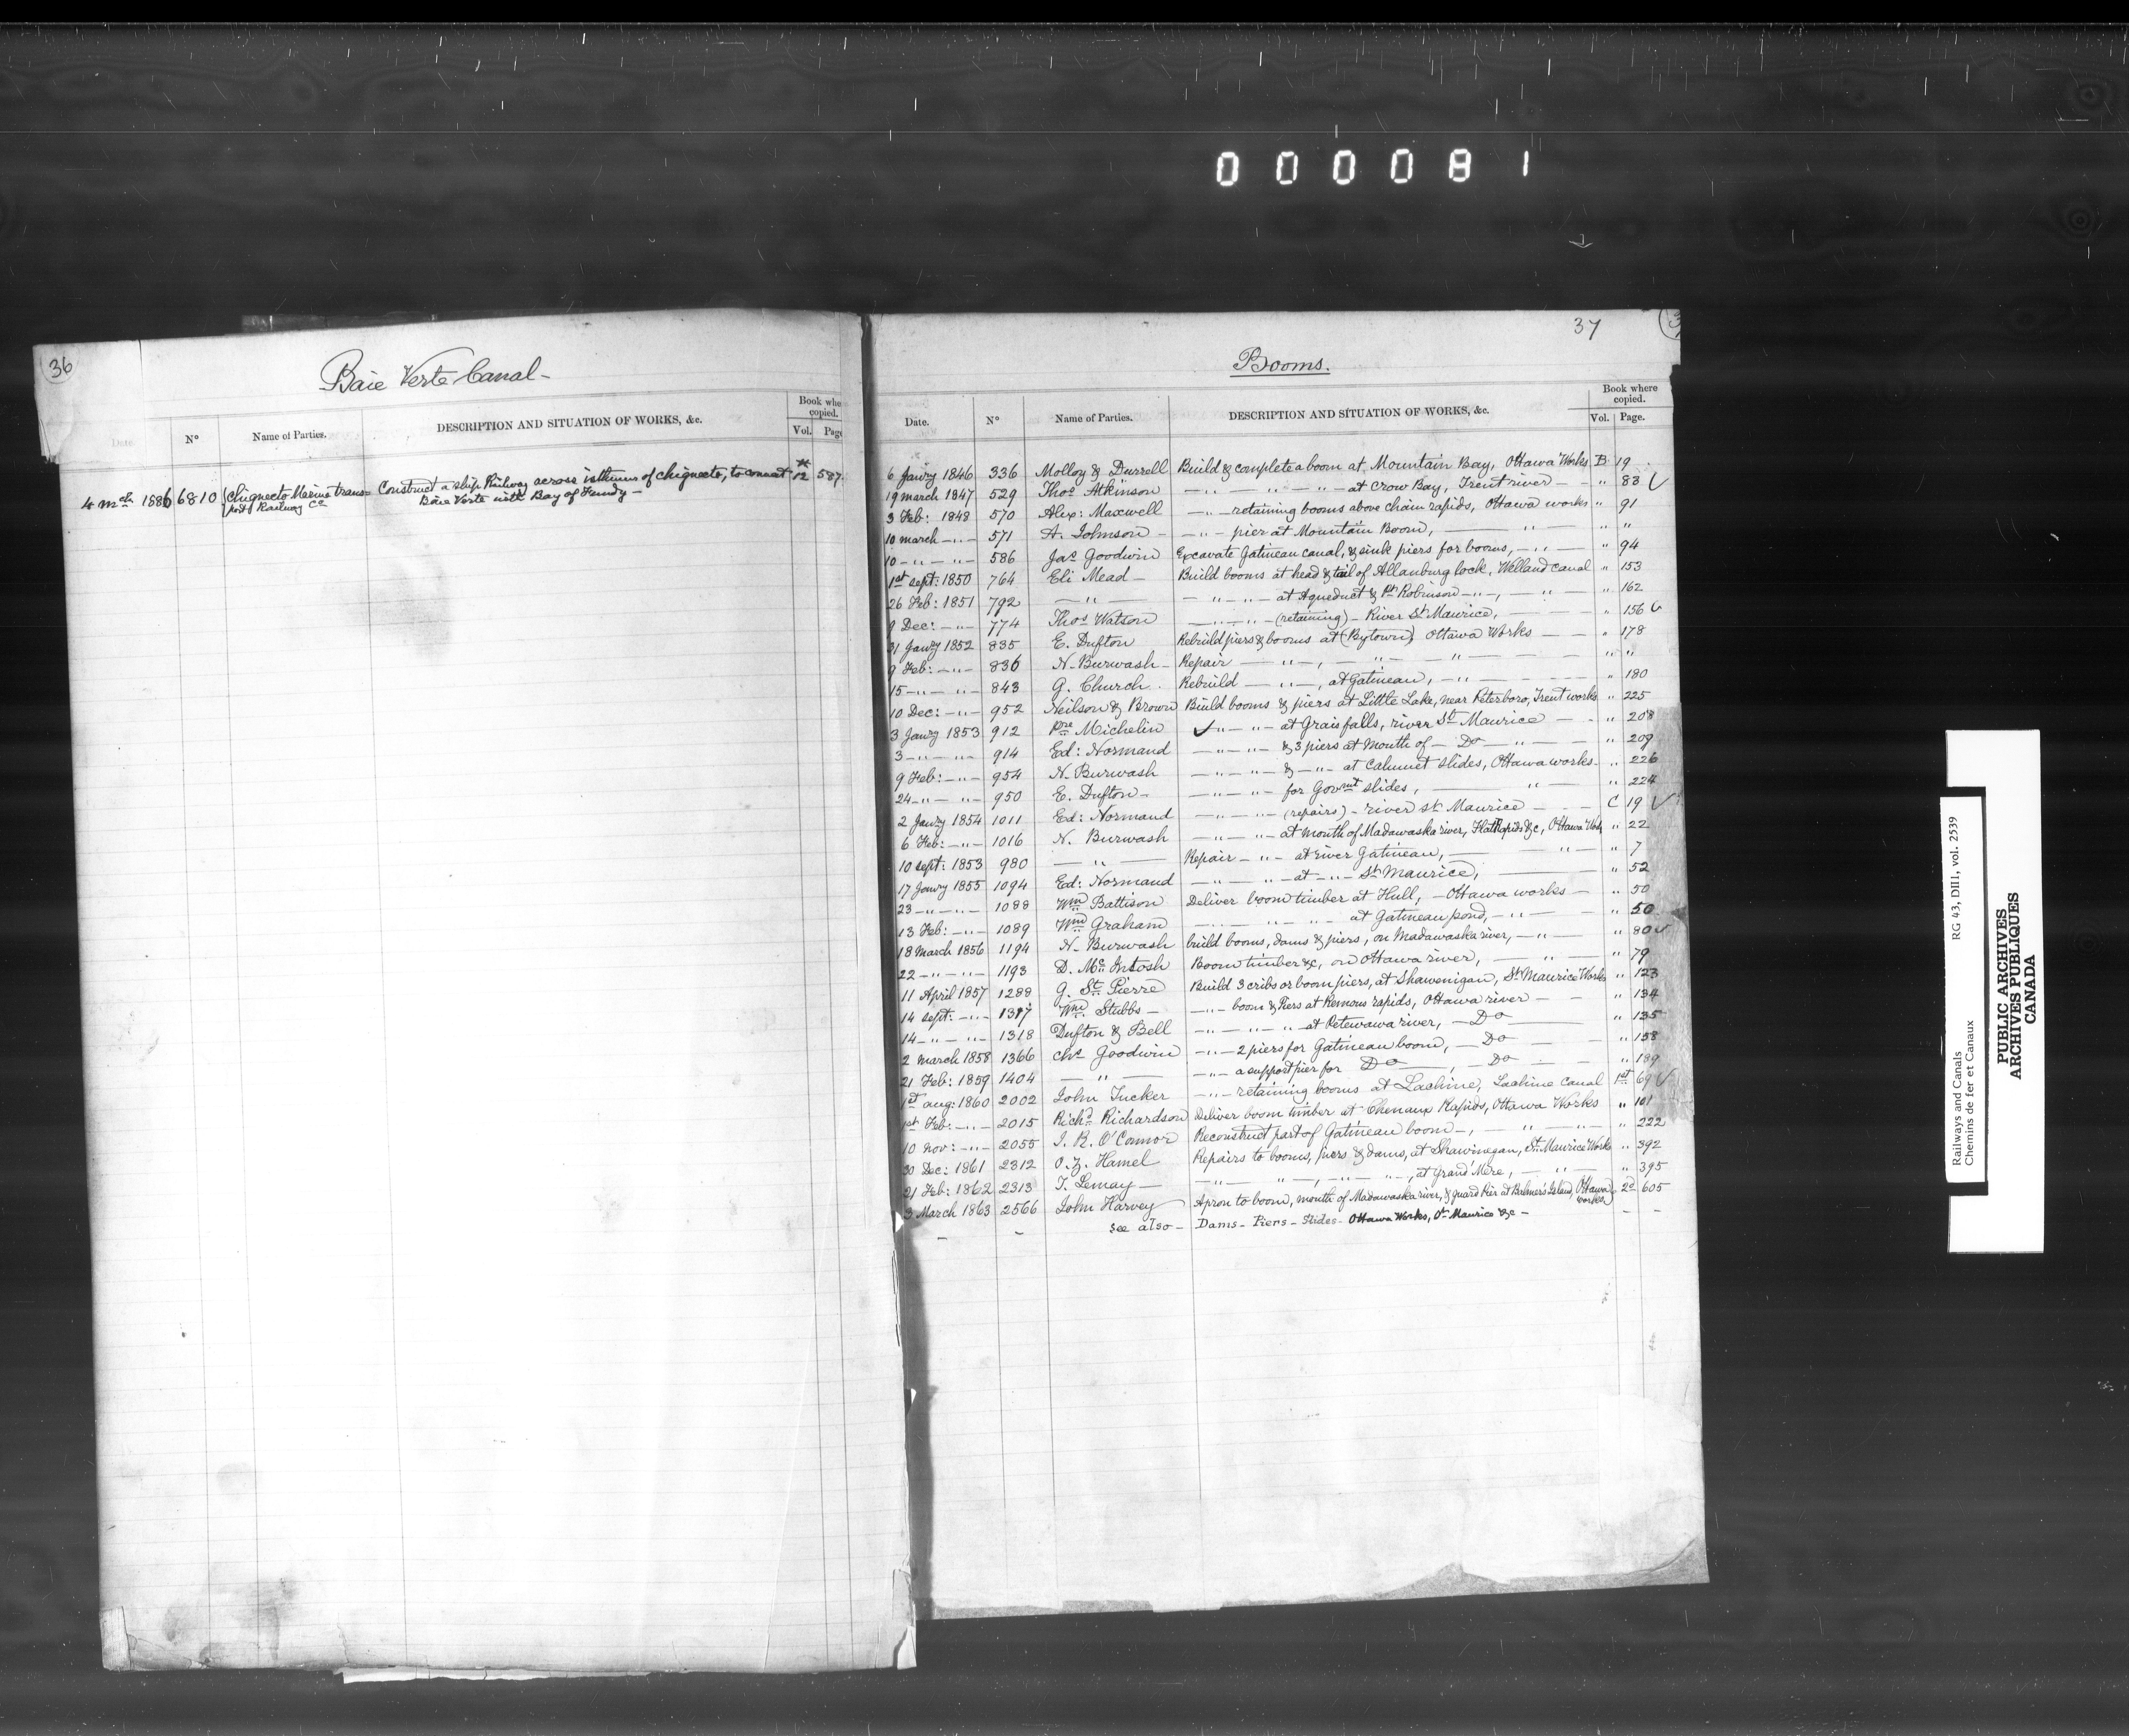 000081
36
Baie Verte Canal -
Date. N° Name of Parties. DESCRIPTION AND SITUATION OF WORKS, &c. Book whe copied. Vol. Page
4 mch 1886 6810 Chignecto Marine trans= Construct a ship Railway across isthmus of Chignecto, to connect 12 587.
port Railway Co Baie Verte with Bay of Fundy -
37
Booms.
Date. N° Name of Parties. DESCRIPTION AND SITUATION OF WORKS, &c. Book where copied. Vol. Page.
6 Janry 1846 336 Molloy & Durrell Build & complete a boom at Mountain Bay, Ottawa Works B 19
19 march 1847 529 Thos Atkinson — " — " — " — at Crow Bay, Trent river — " 83 ✓
3 Feb: 1848 570 Alex: Maxwell — " — retaining booms above chain rapids, Ottawa works " 91
10 march — " — 571 A. Johnson — — " — pier at Mountain Boom, — " — " "
10 — " — " — 586 Jas Goodwin Excavate Gatineau canal, & sink piers for booms, — " — " 94
1st sept: 1850 764 Eli Mead — Build booms at head & tail of Allanburg lock, Welland canal " 153
26 Feb: 1851 792 — " — — " — " — at Aqueduct & Pt Robinson — " —, — " — " 162
9 Dec: — " — 774 Thos Watson — " — " — (retaining) — River St Maurice, — " 156 ✓
31 Janry 1852 835 E. Dufton Rebuild piers & booms at (Bytown) Ottawa Works — " 178
9 Feb: — " — 836 N. Burwash — Repair — " —, — " — " — " "
15 — " — " — 843 G. Church Rebuild — " —, at Gatineau, — " — " 180
10 Dec: — " — 952 Neilson & Brown Build booms & piers at Little Lake, near Peterboro, Trent works " 225
3 Janry 1853 912 Pre Michelin ✓ " — " — at Grais falls, river St Maurice — " 208
3 — " — " — 914 Ed: Normand — " — " — & 3 piers at mouth of — Do — " — " 209
9 Feb: — " — 954 N. Burwash — " — " — & — " — at Calumet slides, Ottawa works — " 226
24 — " — " — 950 E. Dufton — — " — " — for Govmt slides, — " — " 224
2 Janry 1854 1011 Ed: Normand — " — " — (repairs) — river St Maurice — C 19 ✓
6 Feb: — " — 1016 N. Burwash — " — " — at mouth of Madawaska river, Flat Rapids &c, Ottawa Works " 22
10 sept: 1853 980 — " — Repair — " — at river Gatineau, — " — " 7
17 Janry 1855 1094 Ed: Normand — " — " — at — " — St Maurice, — " 52
23 — " — " — 1088 Wm Battison Deliver boom timber at Hull, — Ottawa works — " 50
13 Feb: — " — 1089 Wm Graham — " — " — at Gatineau pond, — " — " 50
18 March 1856 1194 N. Burwash build booms, dams & piers, on Madawaska river, — " — " 80 ✓
22 — " — " — 1193 D. Mc Intosh Boom timber &c, on Ottawa river, — " — " 79
11 April 1857 1288 G. St Pierre Build 3 cribs or boom piers, at Shawenigan, St Maurice Works " 123
14 sept: — " — 1317 Wm Stubbs — — " — boom & Piers at Remous rapids, Ottawa river — " 134
14 — " — " — 1318 Dufton & Bell — " — " — " — at Petewawa river, — Do — " 135
2 March 1858 1366 Chs Goodwin — " — 2 piers for Gatineau boom, — Do — " 158
21 Feb: 1859 1404 — " — — " — a support pier for Do —, — Do — " 189
1st aug: 1860 2002 John Tucker — " — retaining booms at Lachine, Lachine canal 1st 69 ✓
1st Feb: — " — 2015 Richd Richardson Deliver boom timber at Chenaux Rapids, Ottawa Works " 101
10 Nov: — " — 2055 J. R. O'Connor Reconstruct part of Gatineau boom —, — " — " — " 222
30 Dec: 1861 2312 O. Z. Hamel Repairs to booms, piers & dams, at Shawinegan, St Maurice Works " 392
21 Feb: 1862 2313 T. Lemay — — " — " —, — " — " —, at Grand Mere, — " — " 395
3 March 1863 2566 John Harvey Apron to boom, mouth of Madawaska river, & guard Pier at Bahner's Island, Ottawa works 2d 605
see also — Dams — Piers — Slides — Ottawa Works, St Maurice &c —
Railways and Canals RG 43, DIII, vol. 2539
Chemins de fer et Canaux
PUBLIC ARCHIVES
ARCHIVES PUBLIQUES
CANADA